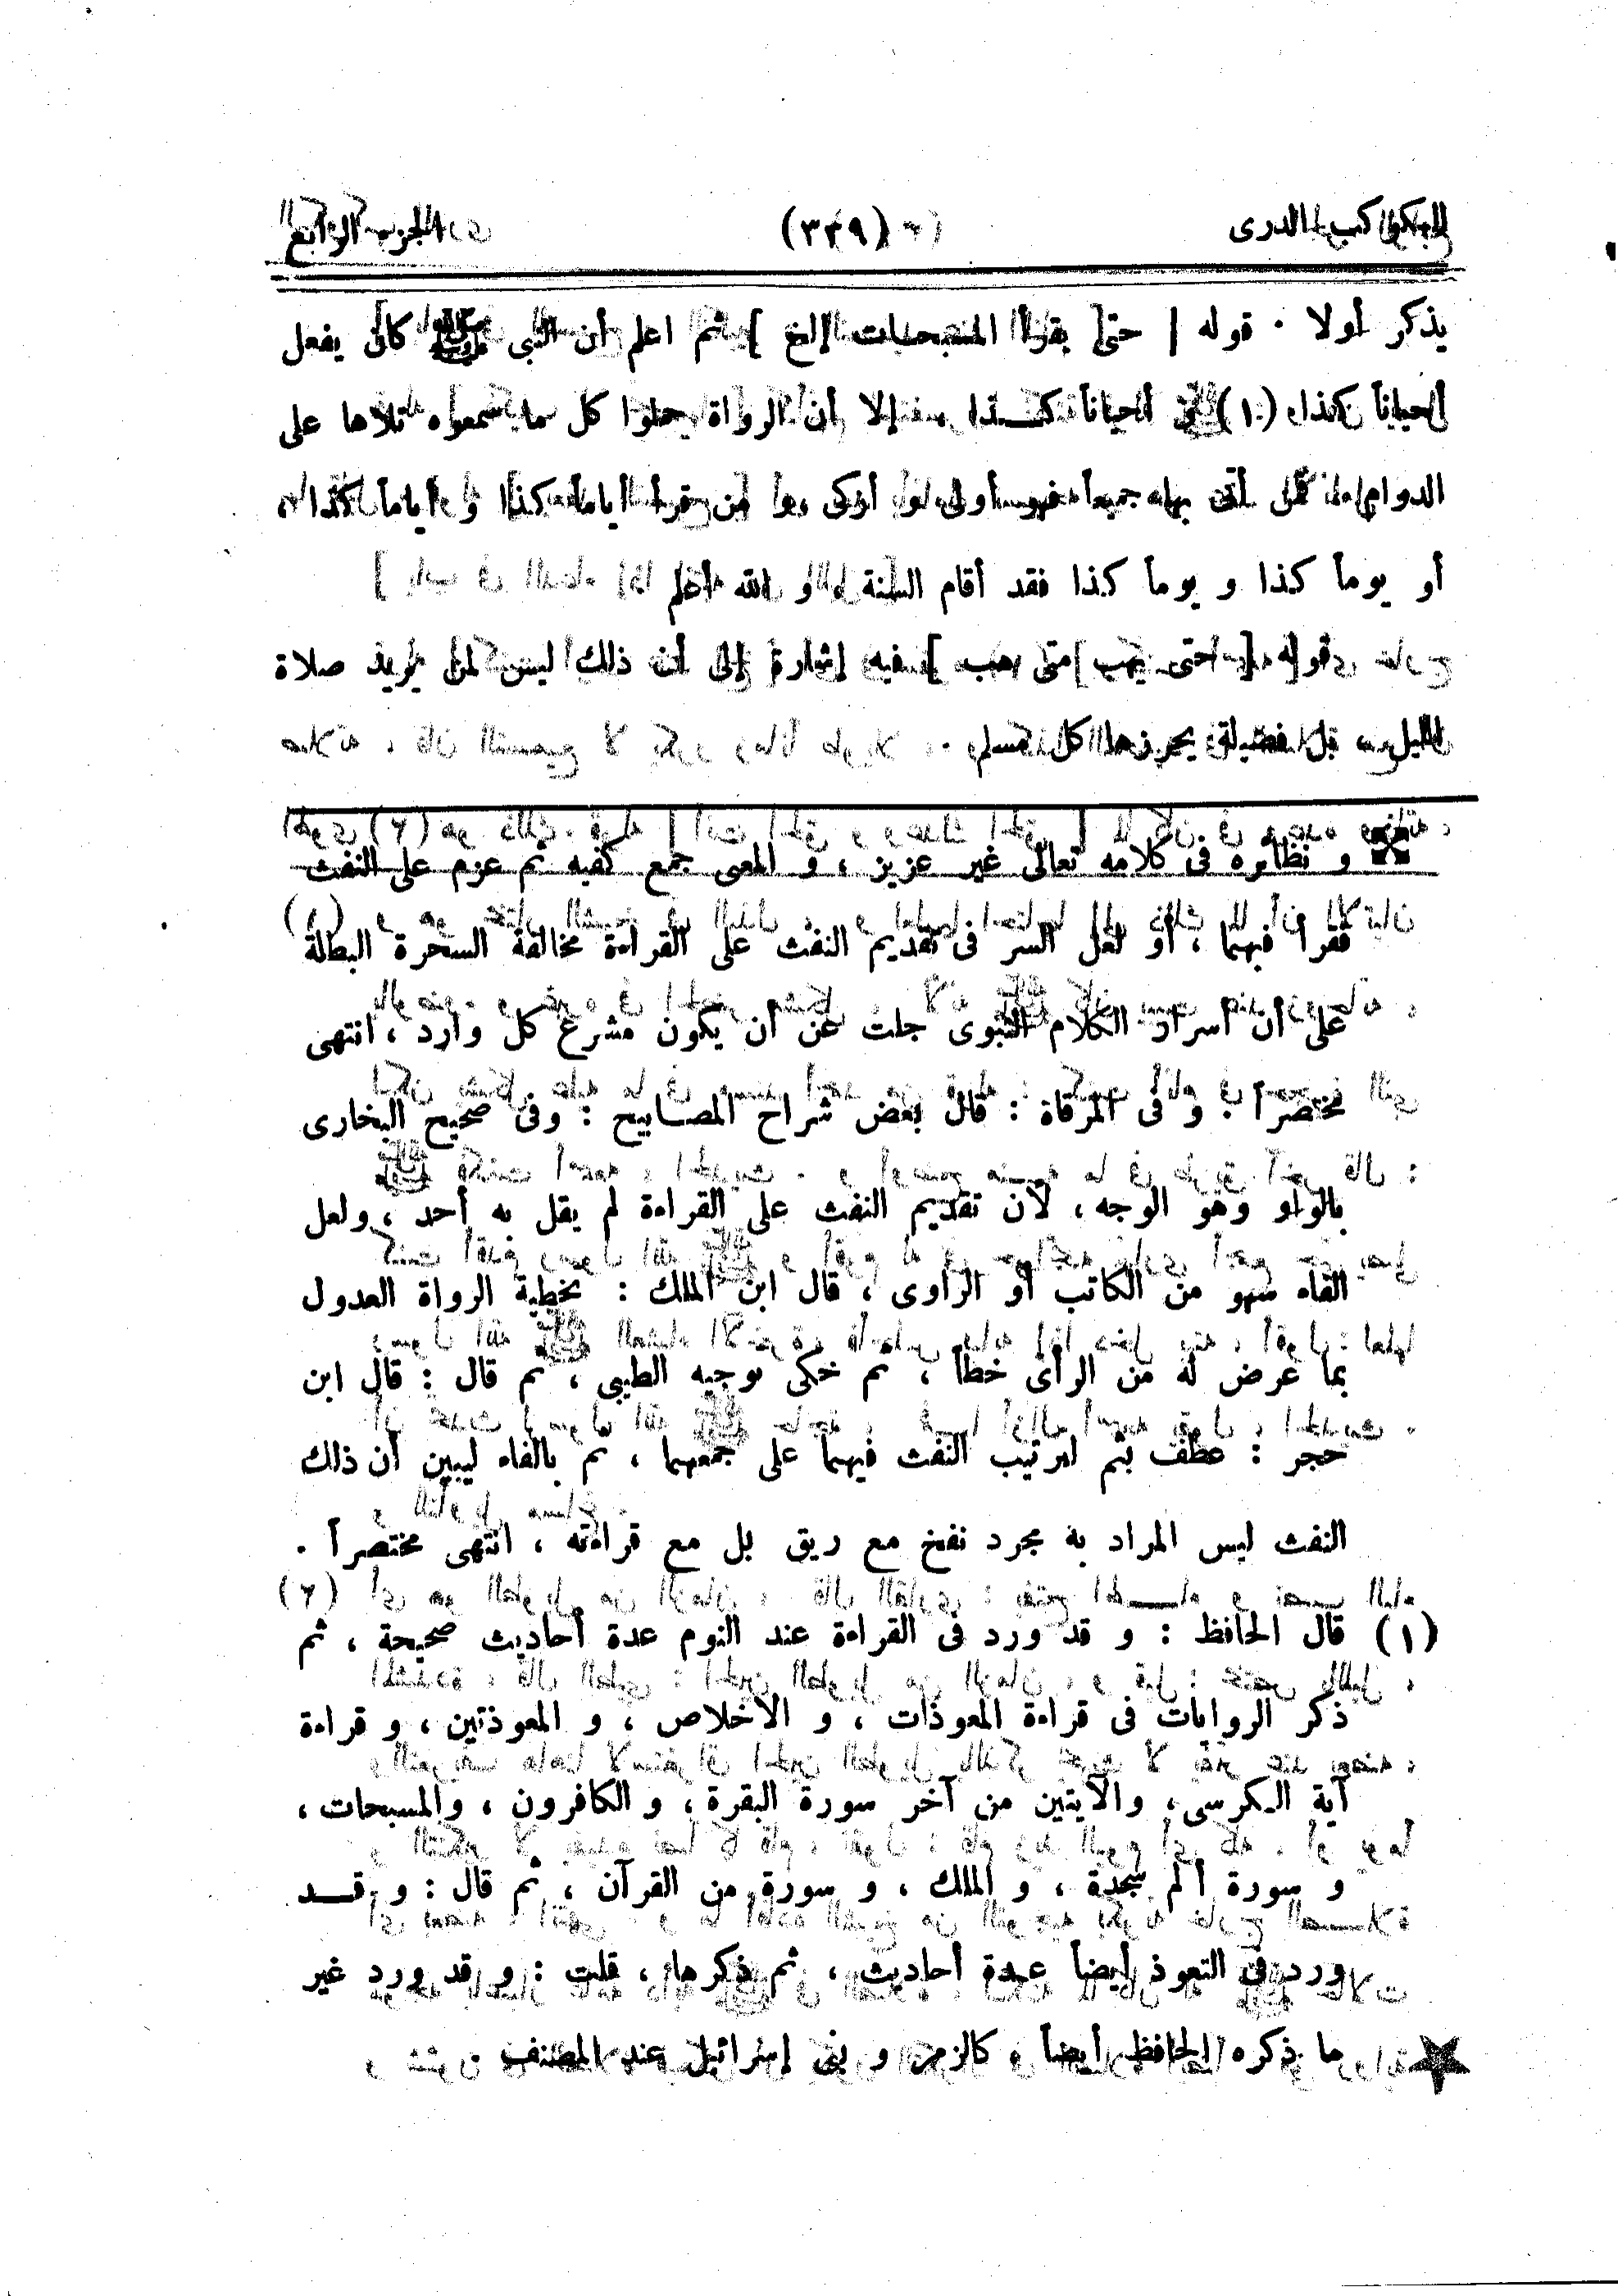 الكوكب الدرى (٣٣٩) الجزء الرابع
يذكر أولا . قوله [ حتى يقرأ المسبحات إلخ ] ثم اعلم أن النبى ﷺ كان يفعل
أحياناً كذا (١) و أحياناً كـــذا ، إلا أن الرواة حملوا كل ما سمعوه تلاها على
الدوام فمن أتى بها جميعاً فهو أولى و أزكى و من قرأ أياماً كذا و أياماً كذا ،
أو يوماً كذا و يوماً كذا فقد أقام السنة و الله أعلم
قوله [ حتى يهب متى هب ] فيه إشارة إلى أن ذلك ليس لمن يريد صلاة
الليل ، بل فضيلة يحرزها كل مسلم .
و نظائره فى كلامه تعالى غير عزيز ، و المعنى جمع كفيه ثم عزم على النفث
فقرأ فيهما ، أو لعل السر فى تقديم النفث على القراءة مخالفة السحرة البطلة
على أن أسرار الكلام النبوى جلت عن أن يكون مشرع كل وارد ، انتهى
مختصراً . و فى المرقاة : قال بعض شراح المصـابيح : وفى صحيح البخارى
بالواو وهو الوجه ، لأن تقديم النفث على القراءة لم يقل به أحد ، ولعل
الفاء سهو من الكاتب أو الراوى ، قال ابن الملك : تخطية الرواة العدول
بما عرض له من الرأى خطأ ، ثم حكى توجيه الطيبى ، ثم قال : قال ابن
حجر : عطف بثم لترتيب النفث فيهما على جمعهما ، ثم بالفاء ليبين أن ذلك
النفث ليس المراد به مجرد نفخ مع ريق بل مع قراءته ، انتهى مختصراً .
(١) قال الحافظ : و قد ورد فى القراءة عند النوم عدة أحاديث صحيحة ، ثم
ذكر الروايات فى قراءة المعوذات ، و الاخلاص ، و المعوذتين ، و قراءة
آية الـكرسى ، والآيتين من آخر سورة البقرة ، و الكافرون ، والمسبحات ،
و سورة ألم سجدة ، و الملك ، و سورة من القرآن ، ثم قال : و قـــد
ورد فى التعوذ أيضاً عـدة أحاديث ، ثم ذكرها ، قلت : و قد ورد غير
ما ذكره الحافظ أيضاً ، كالزمر و بنى إسرائيل عند المصنف .